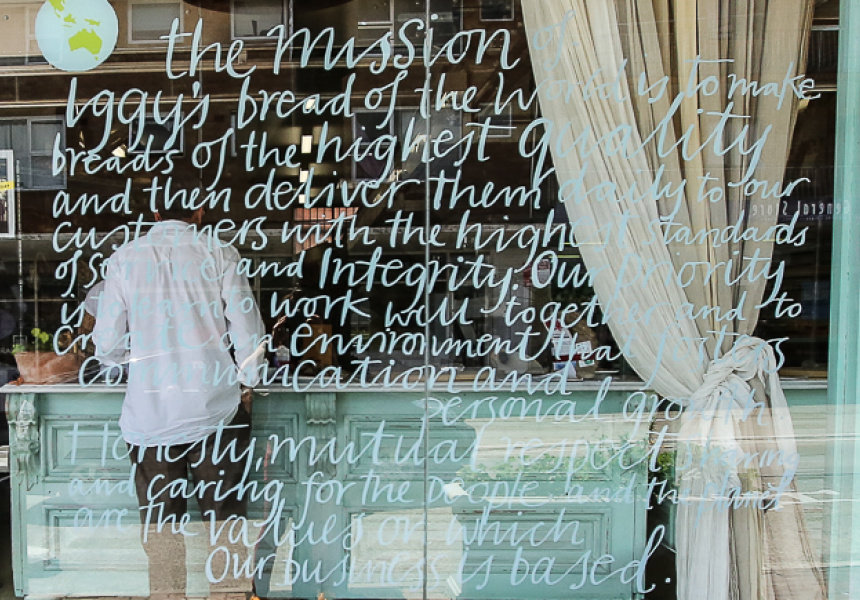 the mission of
Iggy's bread of the World is to make
breads of the highest quality
and then deliver them daily to our
customers with the highest standards
of service and Integrity. Our priority
is to learn to work well together and to
create an environment that fosters
communication and
personal growth
Honesty, mutual respect sharing
and caring for the people and the planet
are the values on which
Our business is based.
General Store